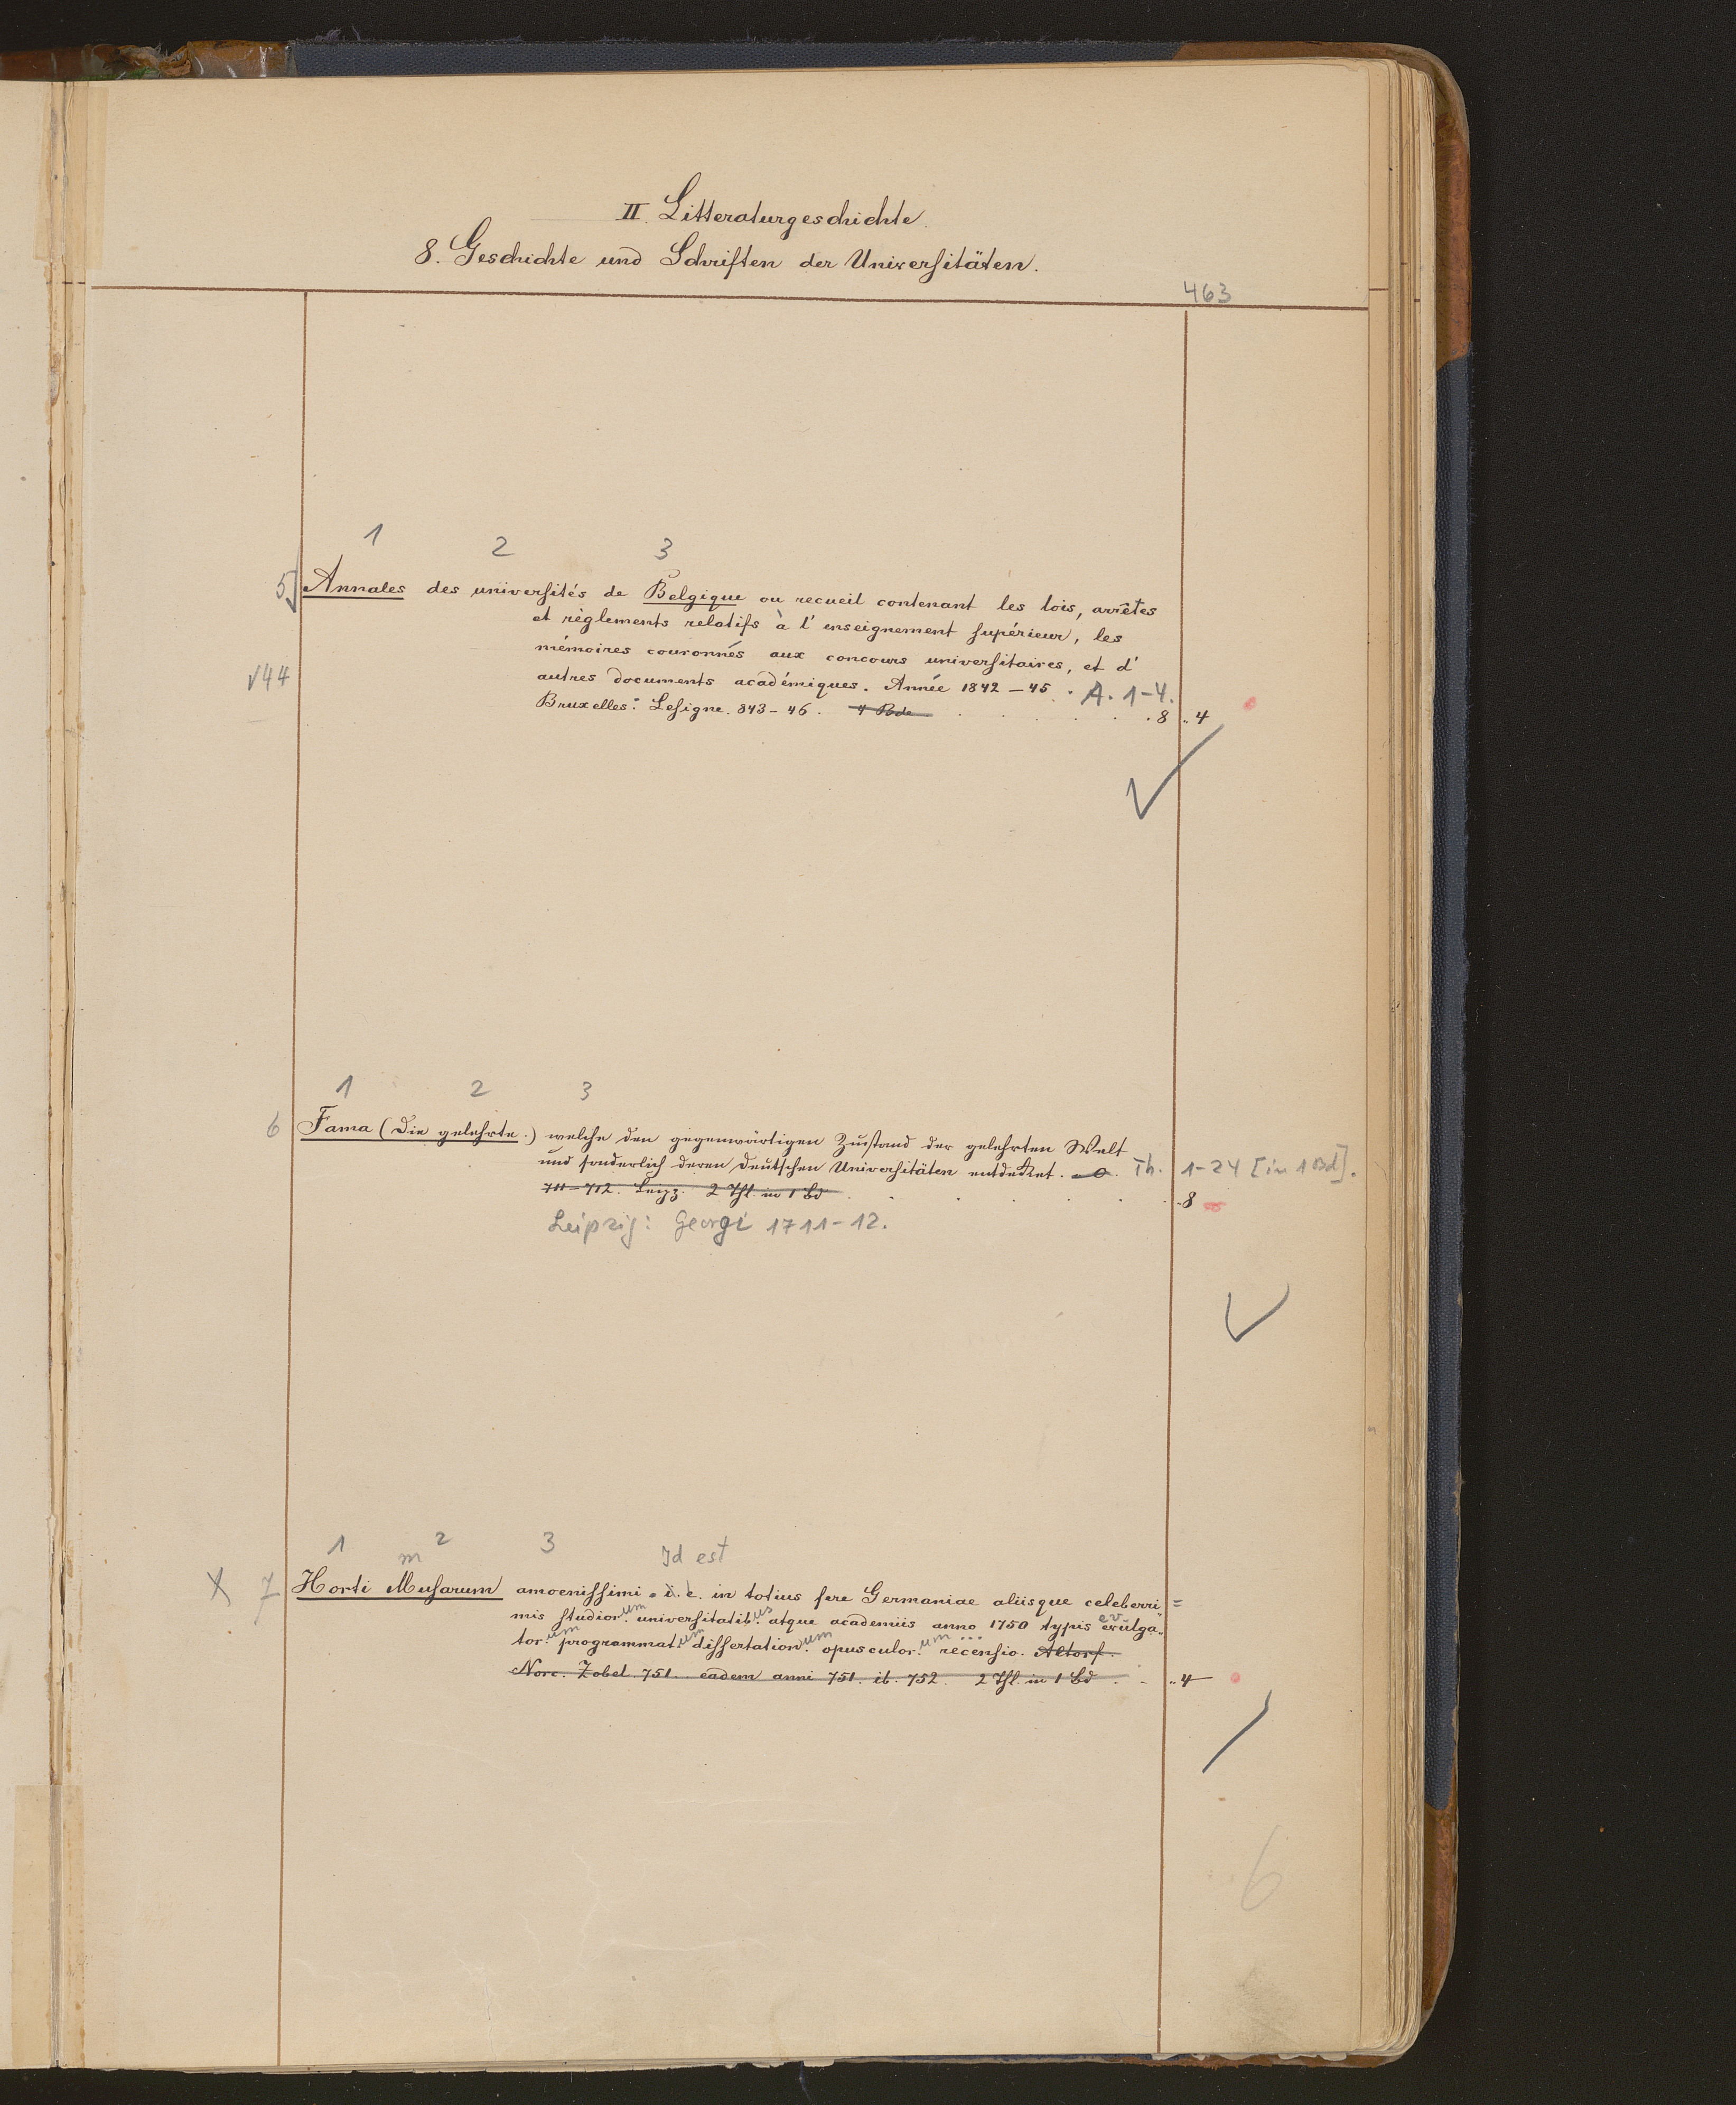 II. Litteraturgeschichte.
8. Geschichte und Schriften der Universitäten.
463
1 2 3
5 Annales des universités de Belgique ou recueil contenant les lois, arrêtes
et règlements relatifs à l' enseignement supérieur, les
mémoires couronnés aux concours universitaires, et d'
√44 autres documents académiques. Année 1842–45. A. 1-4.
Bruxelles: Lesigne. 843–46. 4 Bde . . . . . 8 „4
1 2 3
6 Fama (Die gelehrte.) welche den gegenwärtigen Zustand der gelehrten Welt
und sonderlich deren deutschen Universitäten entdecket. Th. 1-24 [in 1 Bd].
711–712. Leipz. 2 Thl. in 1 Bd . . . . 8
Leipzig: Georgi 1711-12.
1 m 2 3 Id est
X 7 Horti Musarum amoenissimi. i. e. in totius fere Germaniae aliisque celeberri=
mis studior.um universitatib.us atque academiis anno 1750 typis evulga„
tor.um programmat.um dissertation.um opusculor.um ... recensio. Altorf.
Nore. Zobel. 751. eadem anni 751. ib. 752. 2 Thl. in 1 Bd . . „4
6